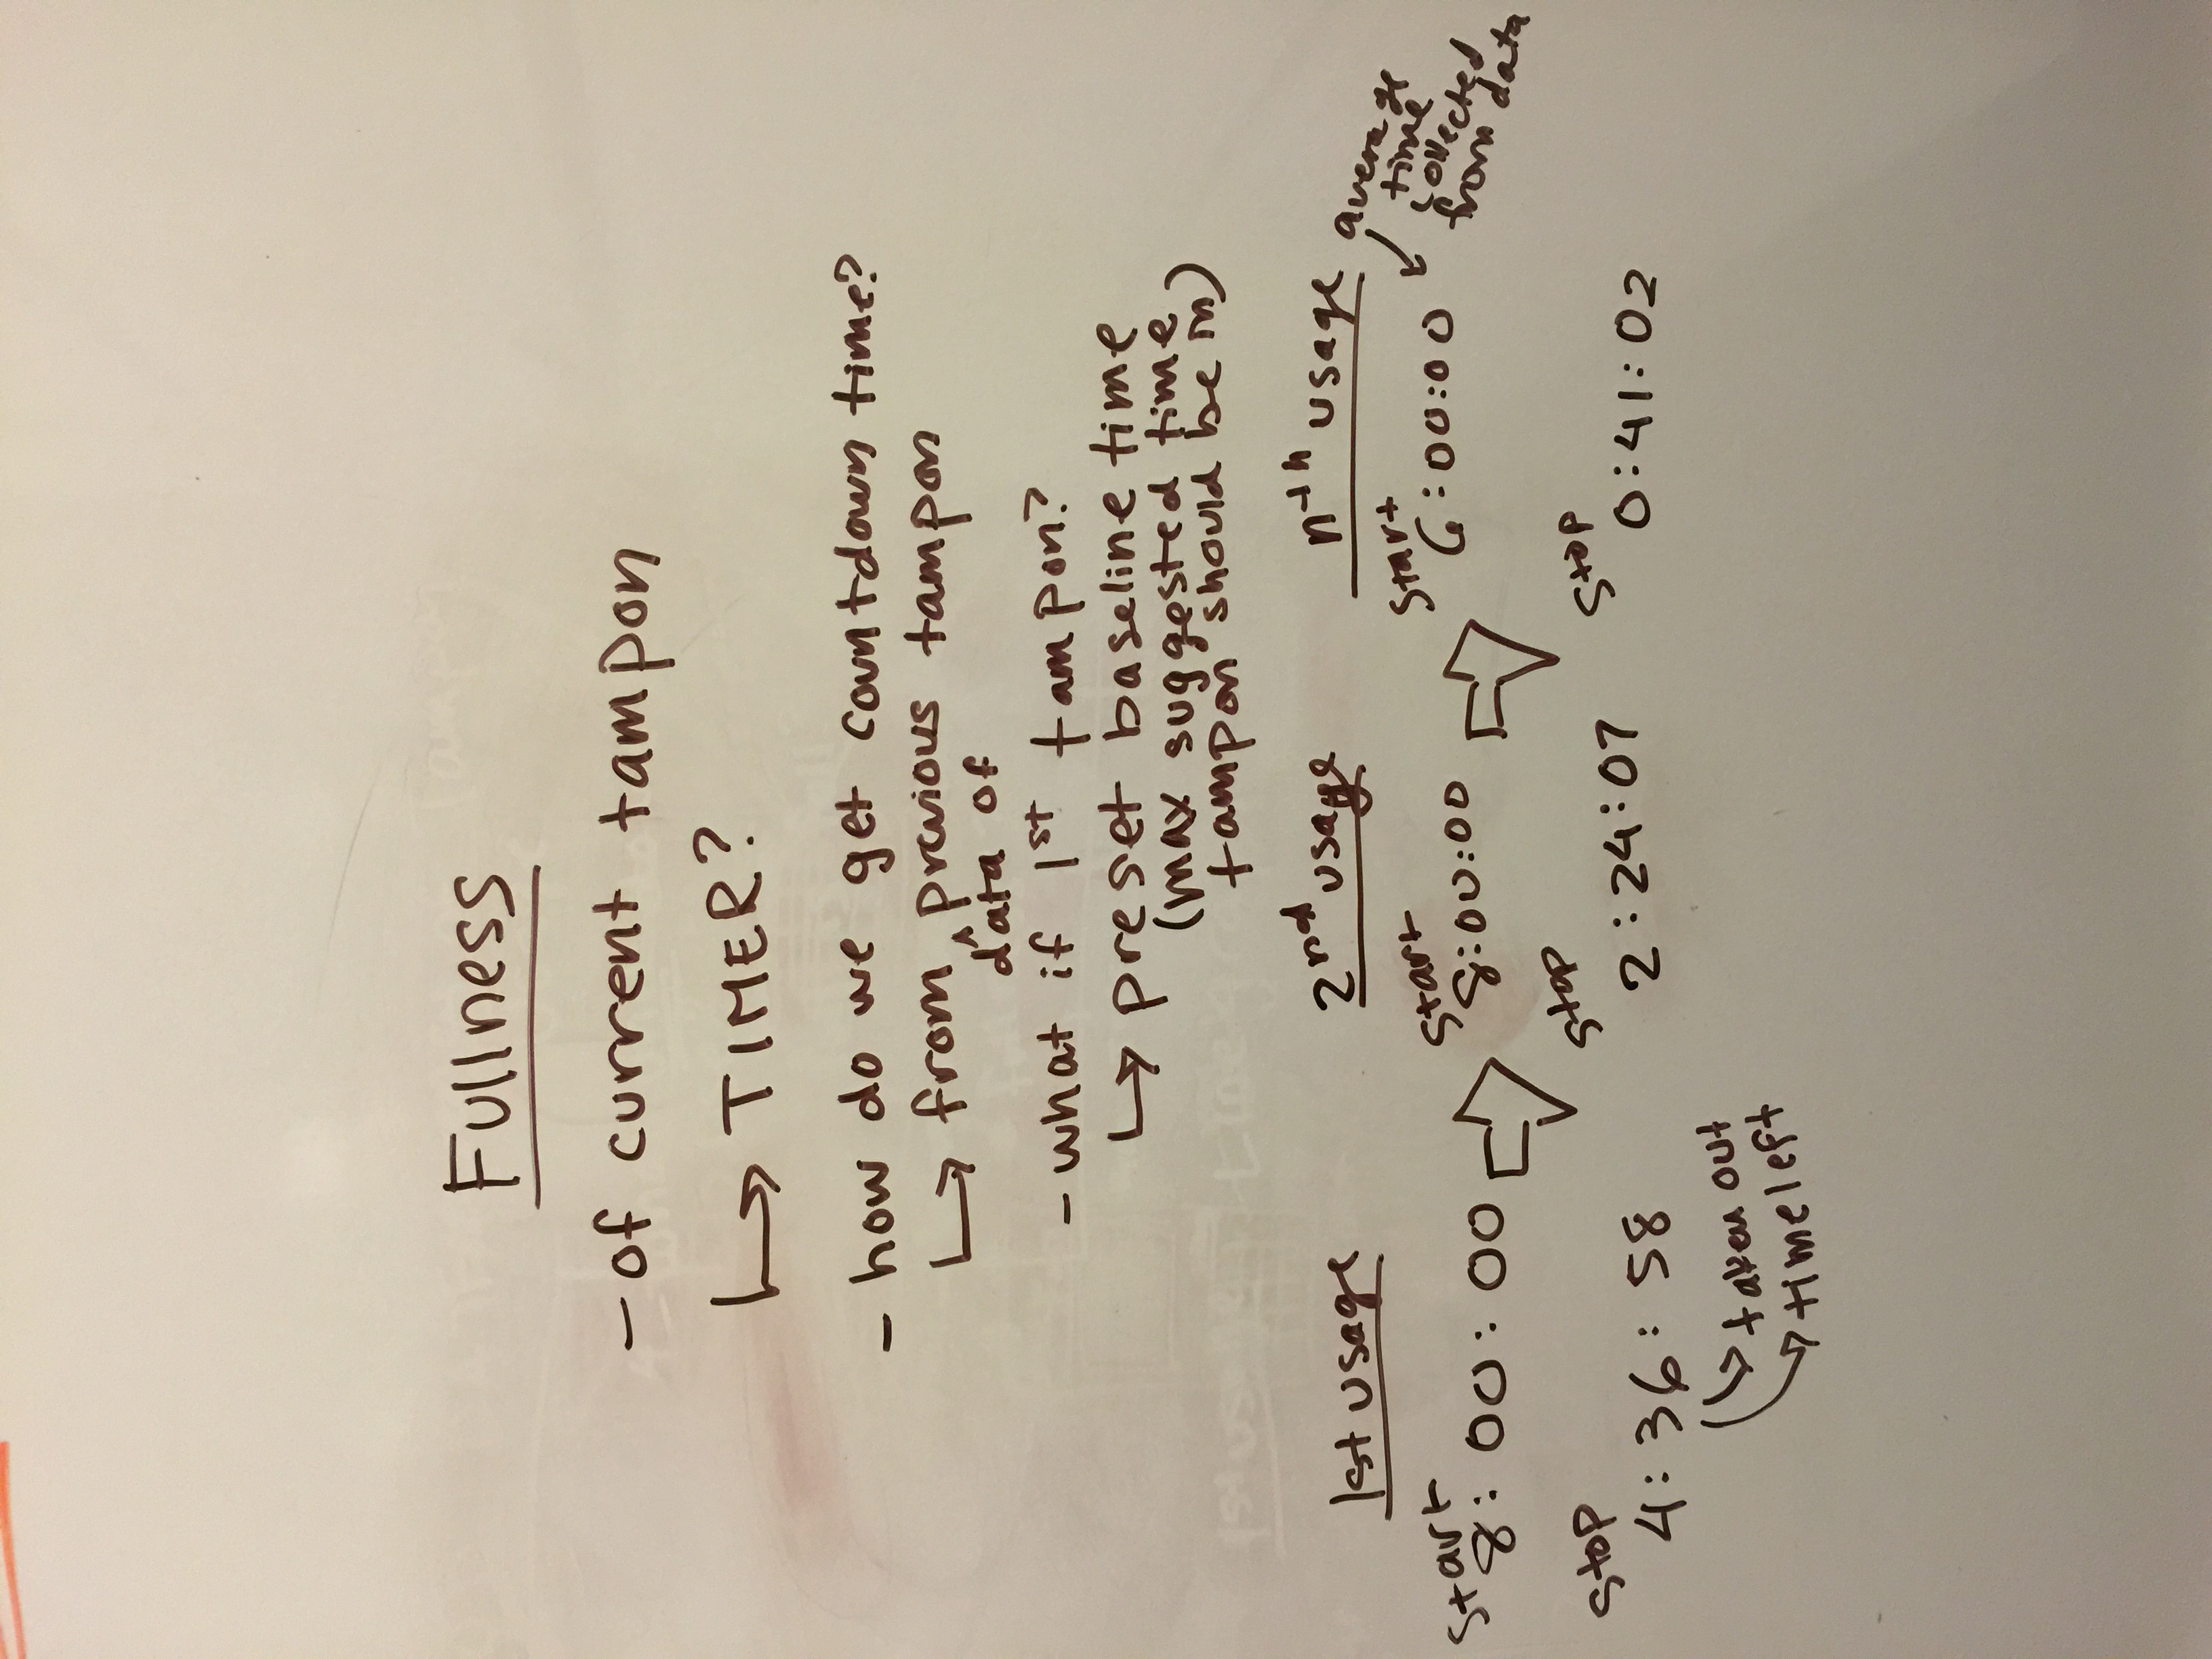 Fullness
- of current tampon
↳ TIMER?
- how do we get countdown time?
↳ from ^ previous tampon
data of
- what if 1st tampon?
↳ preset baseline time
(max suggested time
tampon should be in)
1st usage
start
8:00:00
stop
4:36:58
taken out
time left
2nd usage
start
8:00:00
stop
2:24:07
nth usage
start
6:00:00
average
time
collected
from data
stop
0:41:02